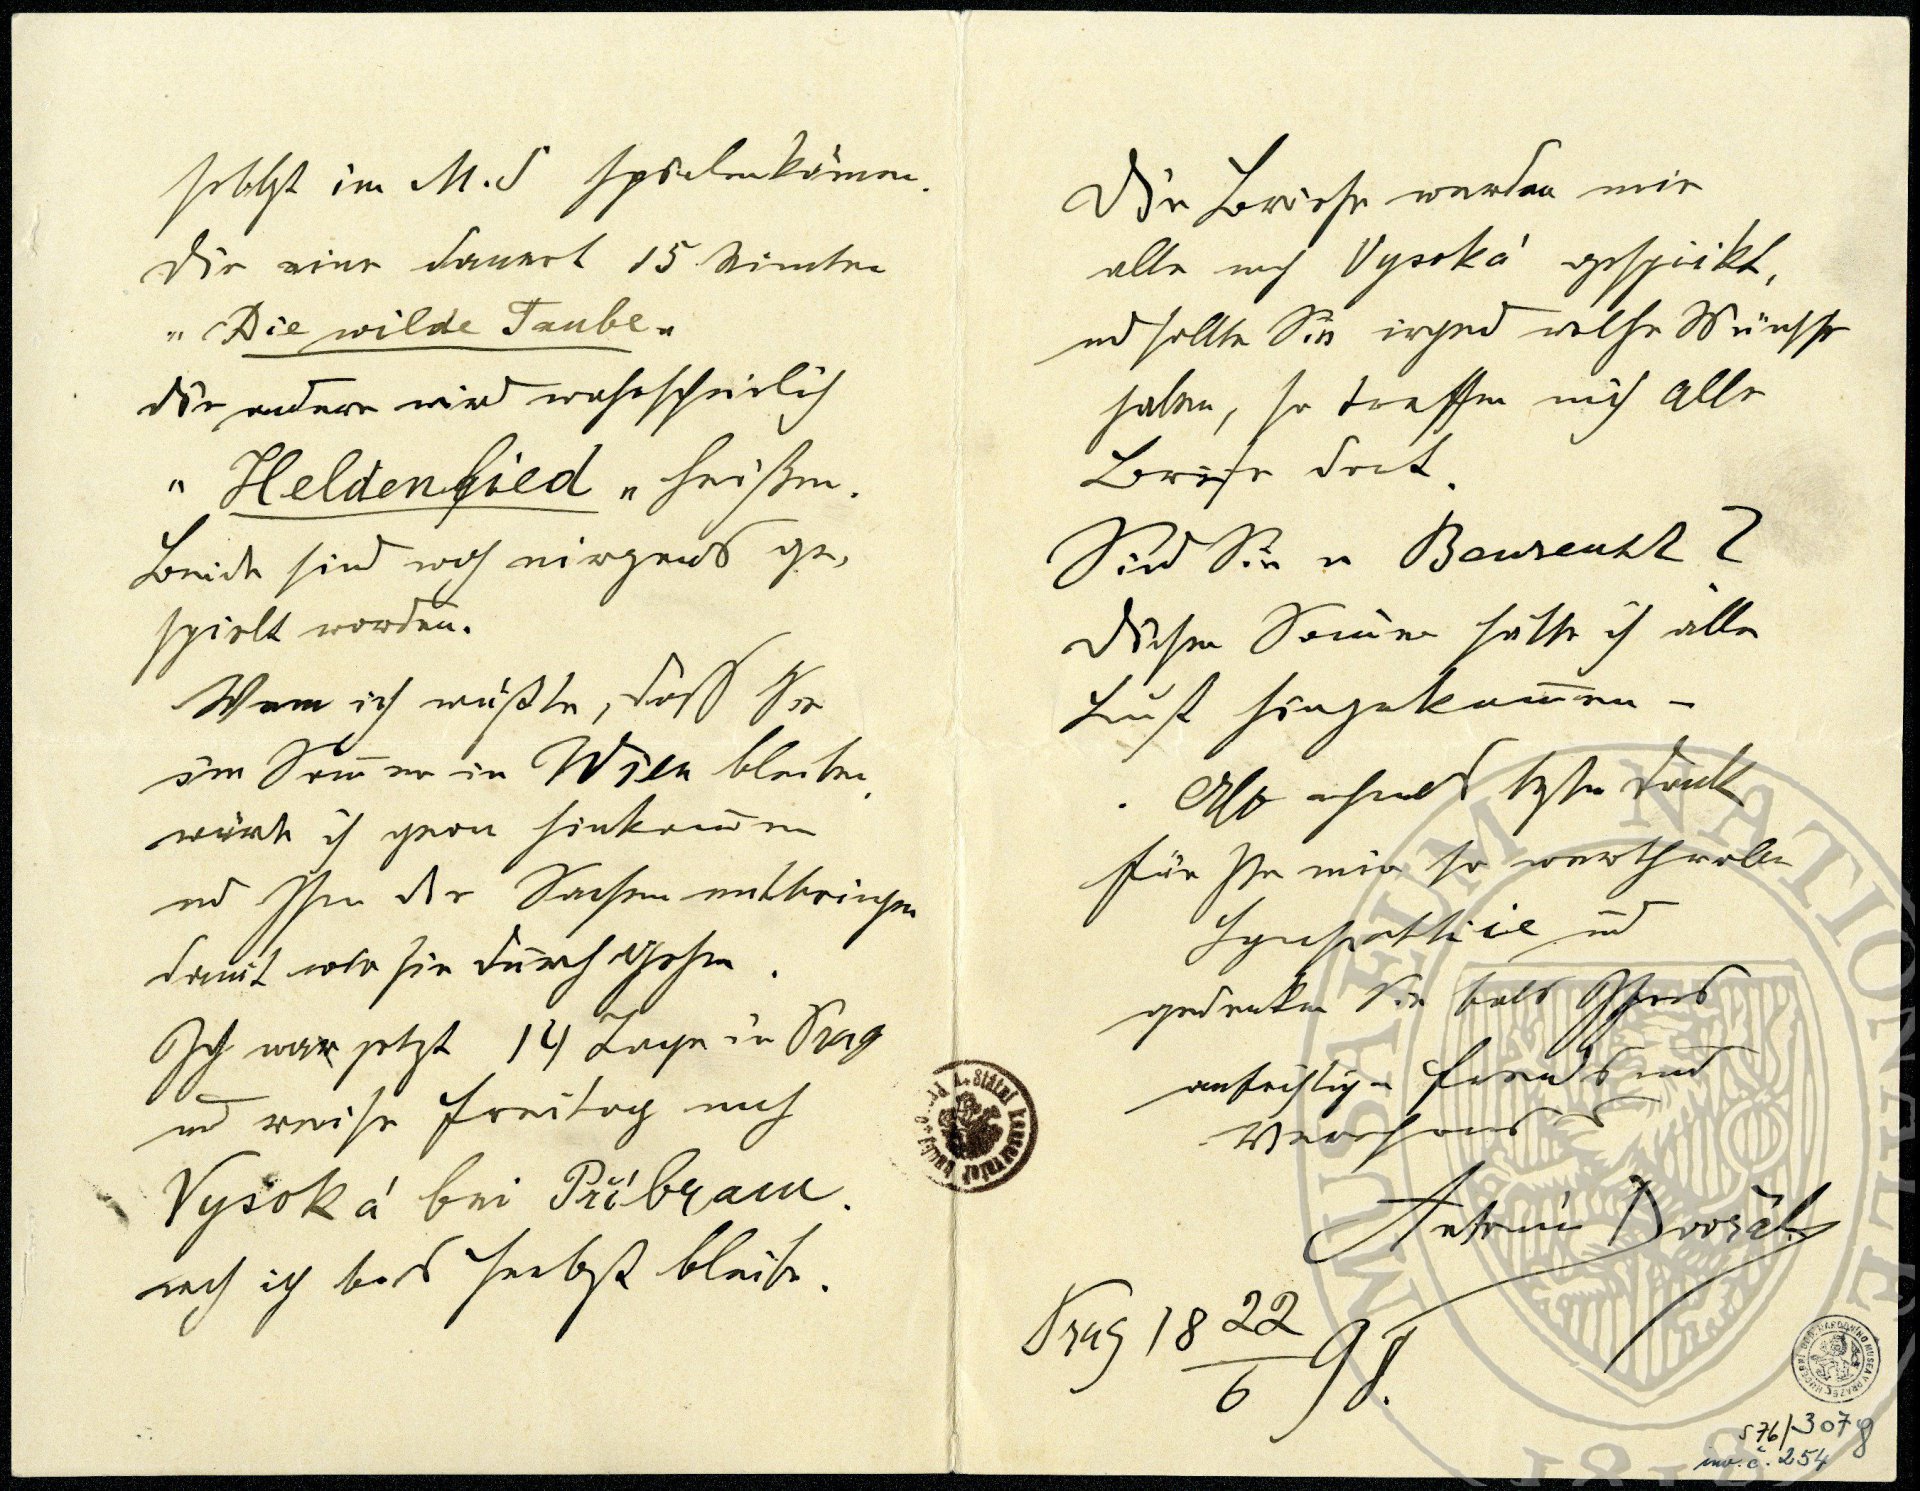 selbst im M.S spielen können.
die eine dauert 15 Minuten
„ Die wilde Taube „
die andere wird wahrscheinlich
„ Heldenlied „ heißen.
Beide sind noch nirgends ge-
spielt worden.
Wenn ich wüßte, daß Sie
im Som̄er in Wien bleiben,
würde ich gern hinkom̄en
und Ihnen die Sachen mitbringen
damit wir sie durchgehen.
Ich war jetzt 14 Tage in Prag
und reise Freitag nach
Vysoká bei Příbram.
ich Herbst bleibe.
Die Briefe werden mir
alle nach Vysoká geschickt,
und sollten Sie irgend welche Wünsche
haben, so treffen mich alle
Briefe dort.
Sind Sie in ?
Diesen Som̄er hätte ich alle
Lust hinzukom̄en –
Also Dank
für Ihre mir so werthvolle
Sympathie und
gedenken Sie Ihres
aufrichtigen Freundes und
Verehrers
Antonín Dvořák
Prag 18 22/6 98.
MUSAEUM NATIONALE
1818
S 76/307 8
inv. č. 254